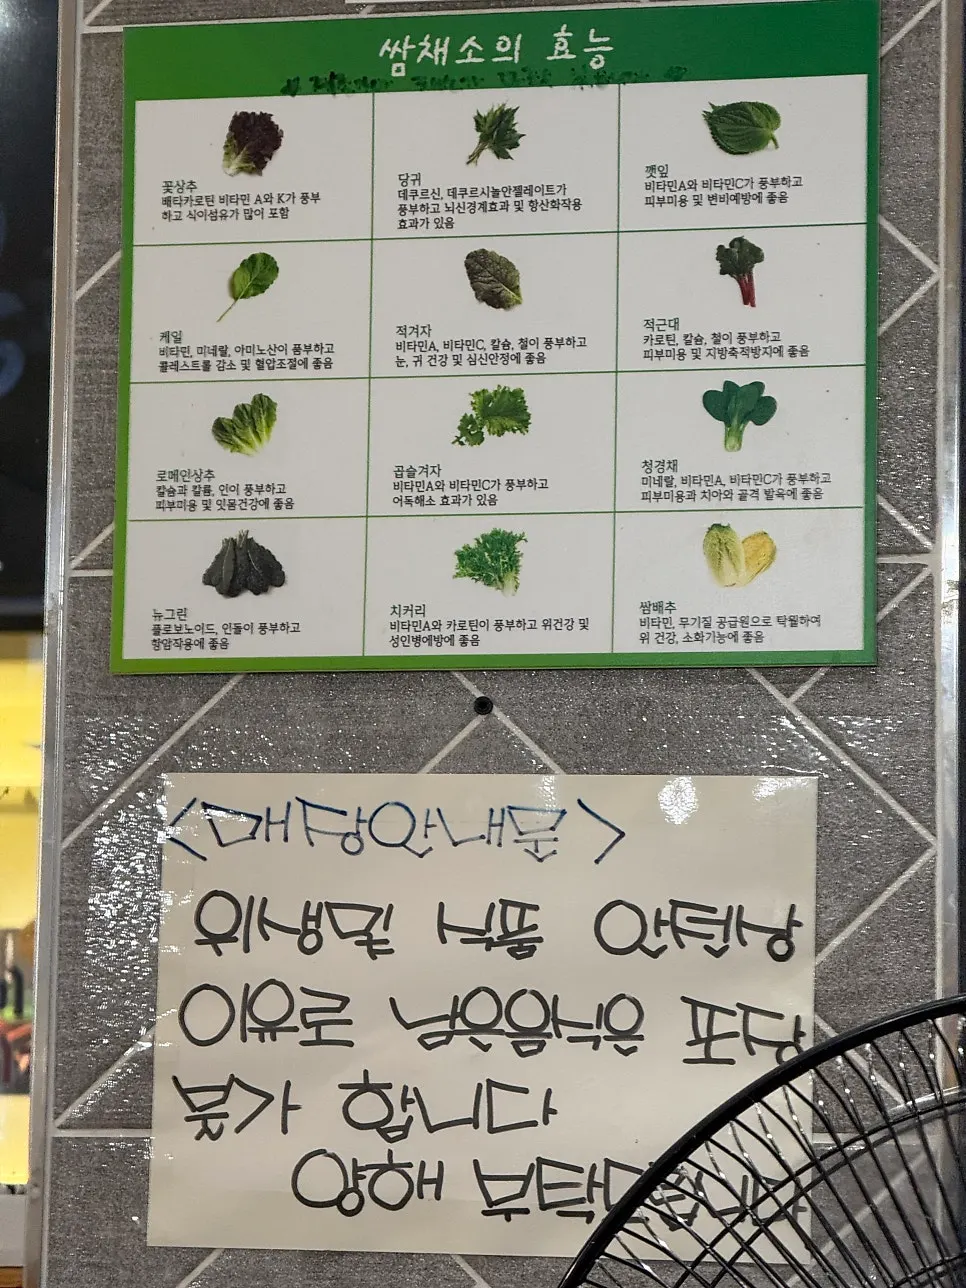 쌈채소의 효능
꽃상추
배타카로틴 비타민 A와 K가 풍부
하고 식이섬유가 많이 포함
당귀
데쿠르신, 데쿠르시놀안젤레이트가
풍부하고 뇌신경계효과 및 항산화작용
효과가 있음
깻잎
비타민A와 비타민C가 풍부하고
피부미용 및 변비예방에 좋음
케일
비타민, 미네랄, 아미노산이 풍부하고
콜레스트롤 감소 및 혈압조절에 좋음
적겨자
비타민A, 비타민C, 칼슘, 철이 풍부하고
눈, 귀 건강 및 심신안정에 좋음
적근대
카로틴, 칼슘, 철이 풍부하고
피부미용 및 지방축적방지에 좋음
로메인상추
칼슘과 칼륨, 인이 풍부하고
피부미용 및 잇몸건강에 좋음
곱슬겨자
비타민A와 비타민C가 풍부하고
어독해소 효과가 있음
청경채
미네랄, 비타민A, 비타민C가 풍부하고
피부미용과 치아와 골격 발육에 좋음
뉴그린
플로보노이드, 인돌이 풍부하고
항암작용에 좋음
치커리
비타민A와 카로틴이 풍부하고 위건강 및
성인병예방에 좋음
쌈배추
비타민, 무기질 공급원으로 탁월하여
위 건강, 소화기능에 좋음
<매장안내문>
위생및 식품 안전상
이유로 남은음식은 포장
불가 합니다
양해 부탁드립니다